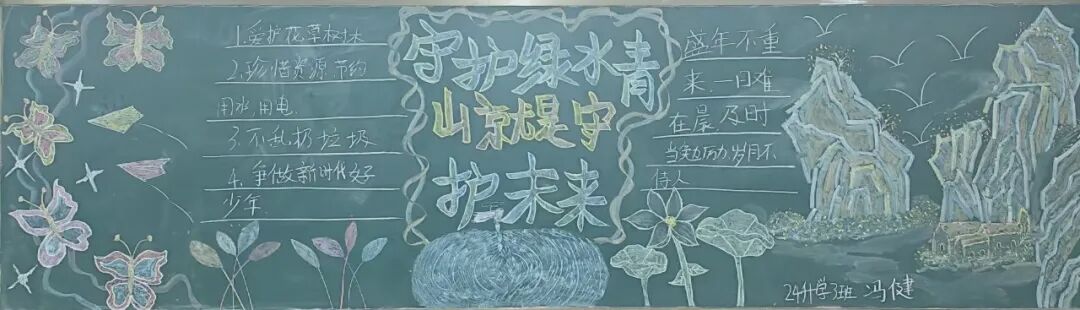 1.爱护花草树木
2.珍惜资源.节约
用水,用电.
3.不乱扔垃圾
4.争做新时代好
少年.
守护绿水青
山京就是守
护未来
盛年不重
来.一日难
在晨.及时
当勉励,岁月不
待人
24升学3班 冯健